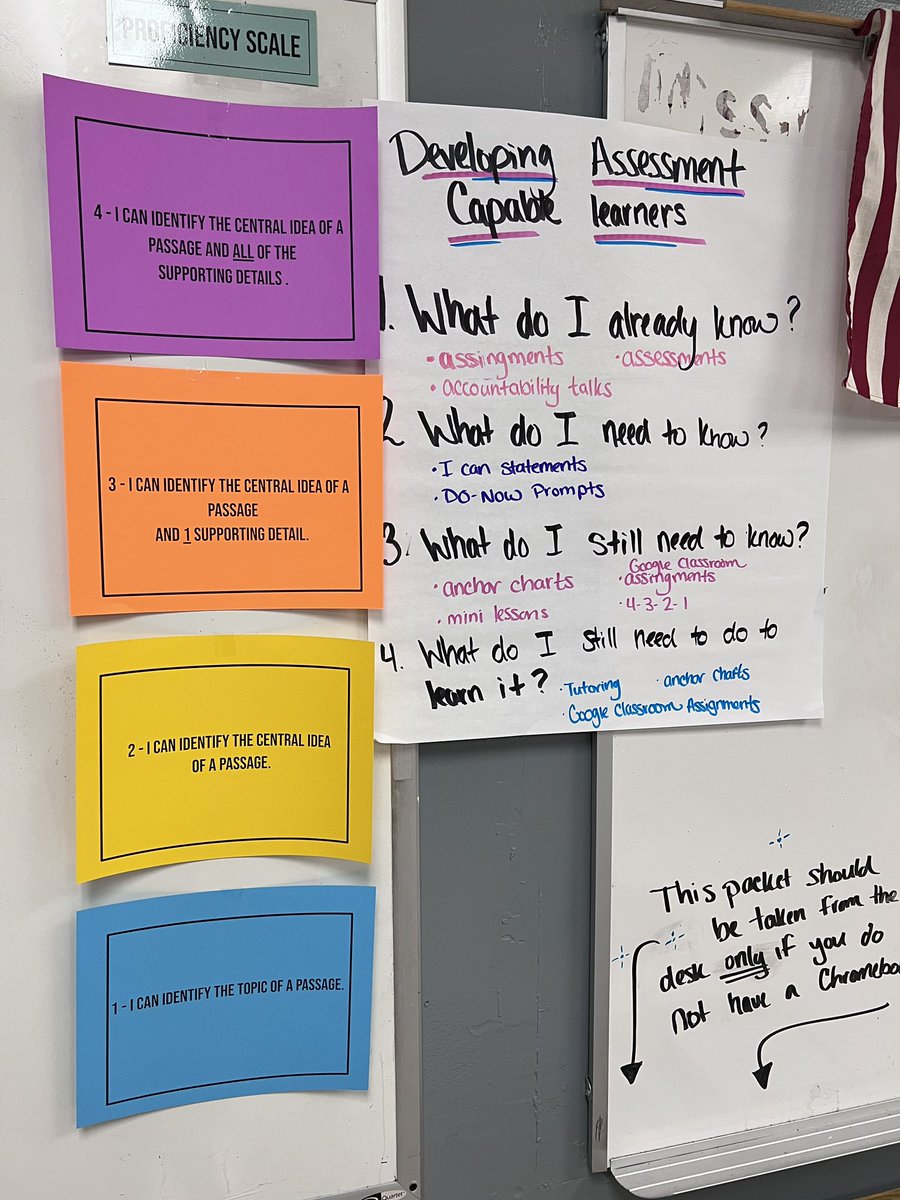 PROFICIENCY SCALE
4 - I CAN IDENTIFY THE CENTRAL IDEA OF A
PASSAGE AND ALL OF THE
SUPPORTING DETAILS .
3 - I CAN IDENTIFY THE CENTRAL IDEA OF A
PASSAGE
AND 1 SUPPORTING DETAIL.
2 - I CAN IDENTIFY THE CENTRAL IDEA
OF A PASSAGE.
1 - I CAN IDENTIFY THE TOPIC OF A PASSAGE.
Developing Assessment
Capable learners
1. What do I already know?
• assingments • assessments
• accountability talks
2 What do I need to know?
• I can statements
• DO-Now Prompts
3. What do I still need to know?
• anchor charts
• mini lessons
Google Classroom
• assingments
• 4-3-2-1
4. What do I still need to do to
learn it?
• Tutoring • anchor charts
• Google Classroom Assignments
This packet should
be taken from the
desk only if you do
not have a
Quartet